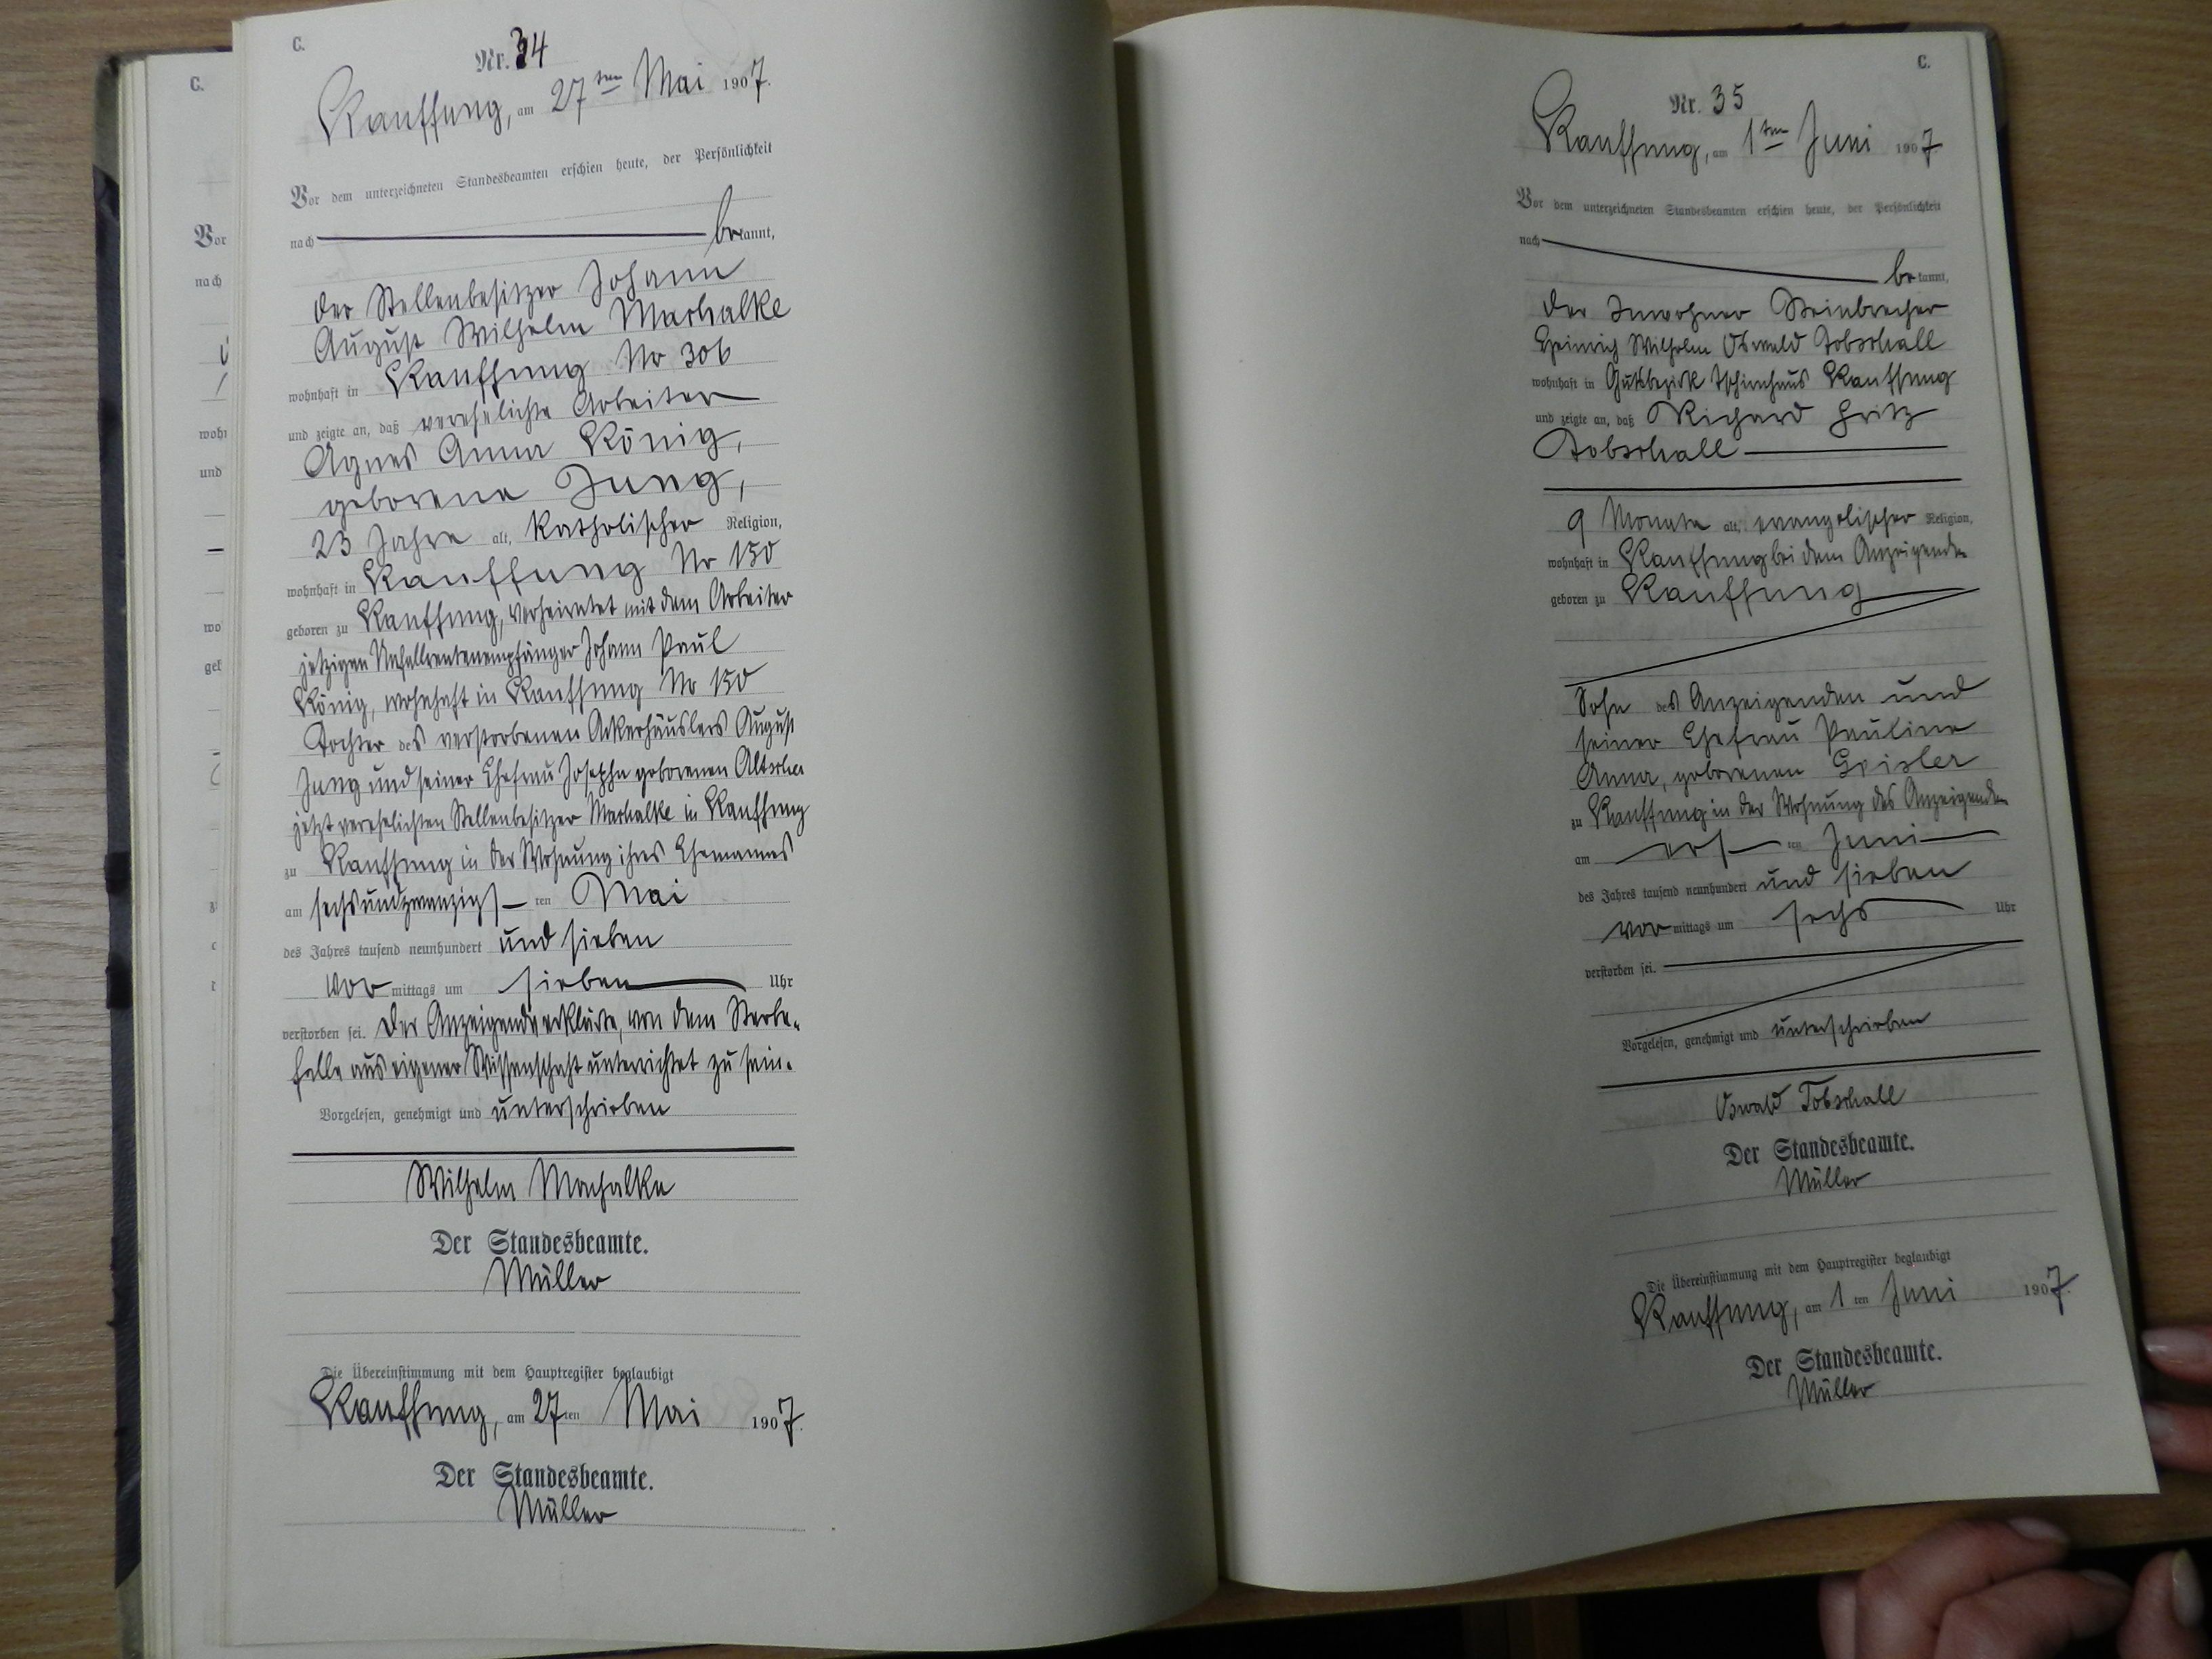 C.
Vor
nach
wohn
und
wo
C.
Nr. 34
Kauffung, am 27ten Mai 1907.
Vor dem unterzeichneten Standesbeamten erschien heute, der Persönlichkeit
nach bekannt,
der Stellenbesitzer Johann
August Wilhelm Machalke
wohnhaft in Kauffung No 306
und zeigte an, daß verehelichte Arbeiter
Agnes Anna König,
geborene Jung,
23 Jahre alt, katholischer Religion,
wohnhaft in Kauffung No 150
geboren zu Kauffung, verheiratet mit dem Arbeiter
jetzigen Unfallrentenempfänger Johann Paul
König, wohnhaft in Kauffung No 150
Tochter des verstorbenen Ackerhäuslers August
Jung und seiner Ehefrau Josepha geborenen
jetzt verehelichten Stellenbesitzer Machalke in Kauffung
zu Kauffung in der Wohnung ihres Ehemannes
am sechsundzwanzigsten Mai
des Jahres tausend neunhundert und sieben
vor mittags um sieben Uhr
verstorben sei. Der Anzeigende erklärte, von dem Sterbe-
falle aus eigener Wissenschaft unterrichtet zu sein.
Vorgelesen, genehmigt und unterschrieben
Wilhelm Machalke
Der Standesbeamte.
Müller
Die Übereinstimmung mit dem Hauptregister beglaubigt
Kauffung, am 27ten Mai 1907.
Der Standesbeamte.
Müller
C.
Nr. 35
Kauffung, am 1ten Juni 1907.
Vor dem unterzeichneten Standesbeamten erschien heute, der Persönlichkeit
nach bekannt,
der Inwohner Steinbrecher
Heinrich Wilhelm Oswald Tobschall
wohnhaft in Gutsbezirk Tschirnhaus Kauffung
und zeigte an, daß Richard Fritz
Tobschall
9 Monate alt, evangelischer Religion,
wohnhaft in Kauffung bei dem Anzeigenden
geboren zu Kauffung
Sohn des Anzeigenden und
seiner Ehefrau Pauline
Anna, geborenen Geisler
zu Kauffung in der Wohnung des Anzeigenden
am ersten Juni
des Jahres tausend neunhundert und sieben
vor mittags um sechs Uhr
verstorben sei.
Vorgelesen, genehmigt und unterschrieben
Oswald Tobschall
Der Standesbeamte.
Müller
Die Übereinstimmung mit dem Hauptregister beglaubigt
Kauffung, am 1ten Juni 1907.
Der Standesbeamte.
Müller